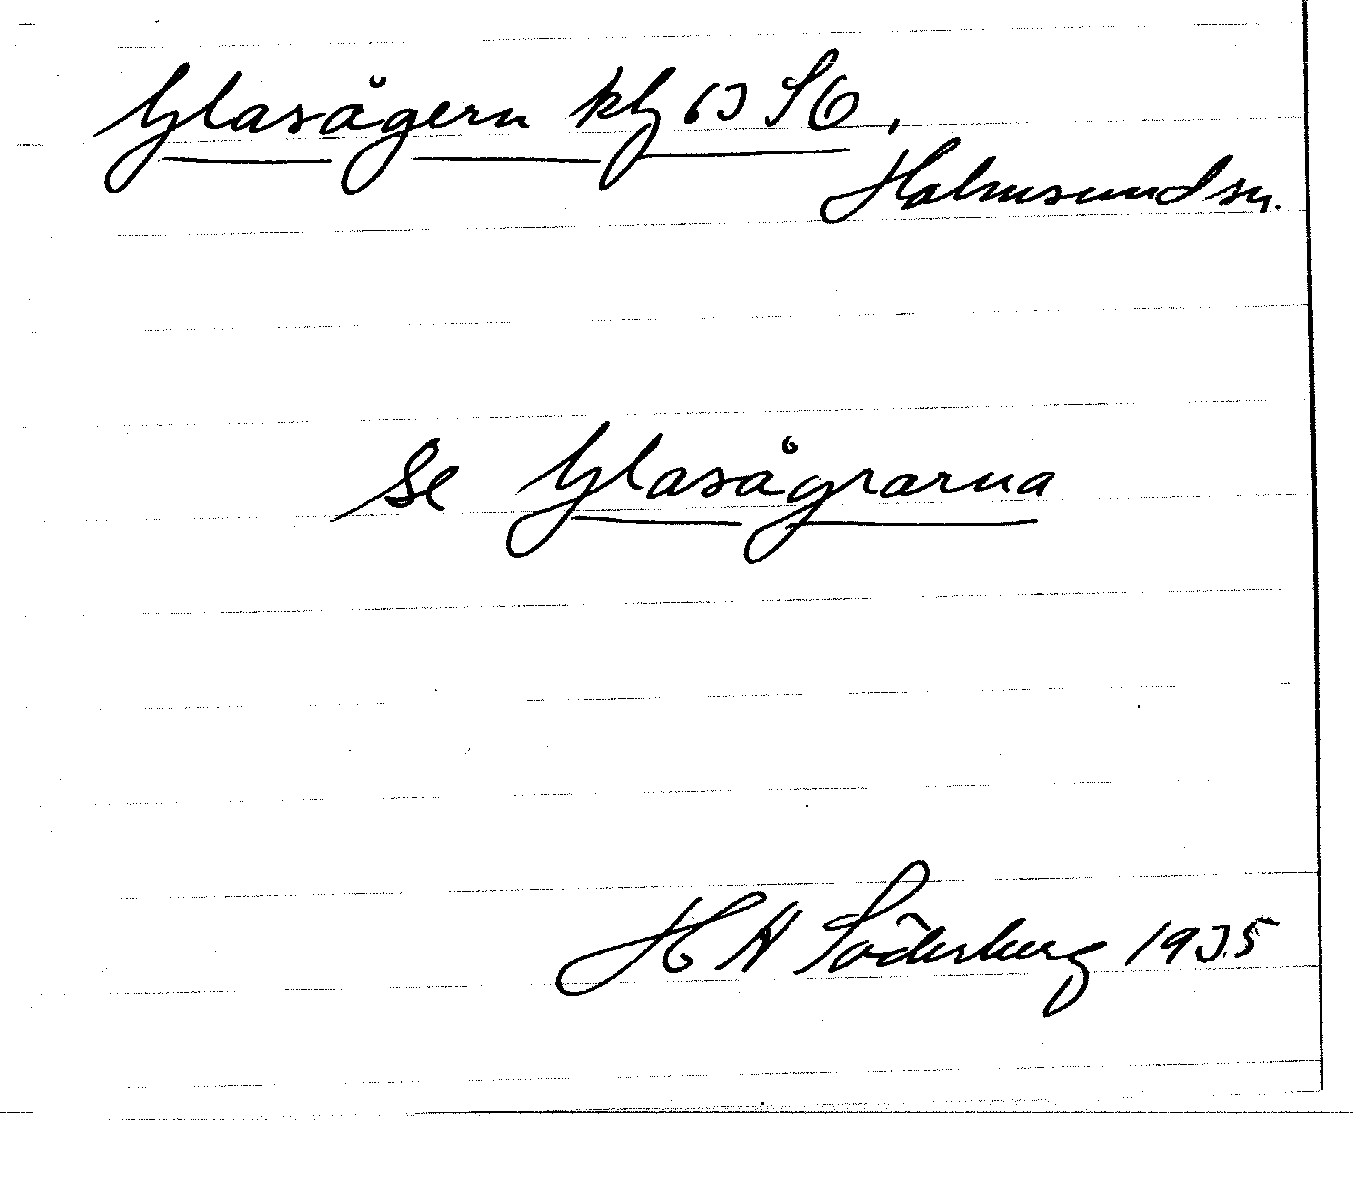 Glasågern kbl 63 S6,
Holmsundsn.
Se Glasågrarna
H A Söderberg 1935